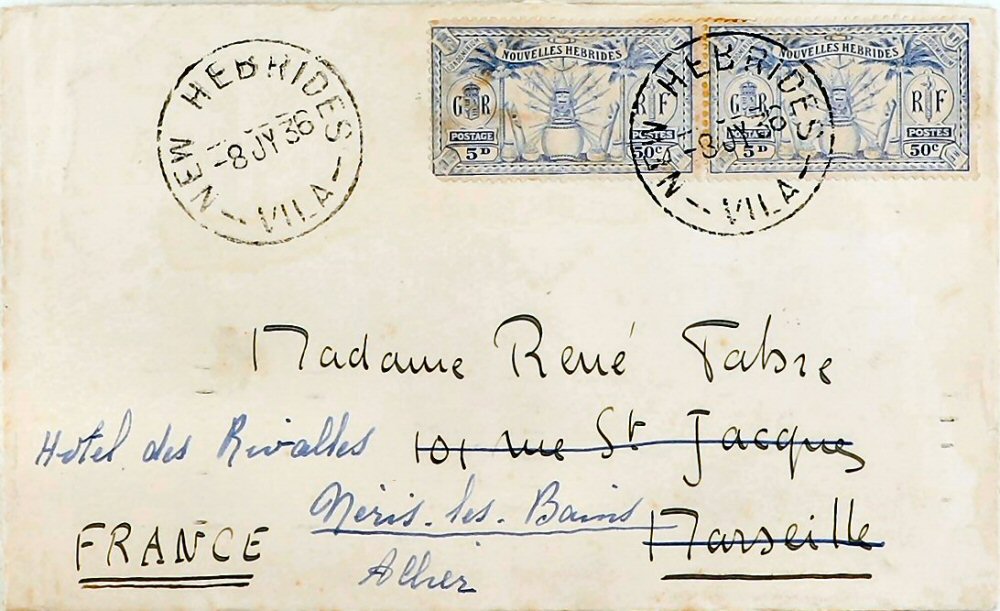 NEW HEBRIDES
-8 JY 36
VILA
NOUVELLES HEBRIDES
G R
R F
POSTAGE
5D
50c
NOUVELLES HEBRIDES
G R
R F
POSTES
5D
50c
NEW HEBRIDES
-8 JY 36
VILA
Madame René Fabre
101 rue St Jacques
Hotel des Rivalles
Marseille
Néris-les-Bains
Allier
FRANCE